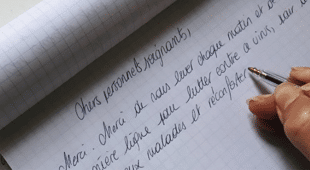 Chers personnels soignants,
Merci. Merci de vous lever chaque matin et de
première ligne pour lutter contre ce virus, pour
aux malades et réconforter